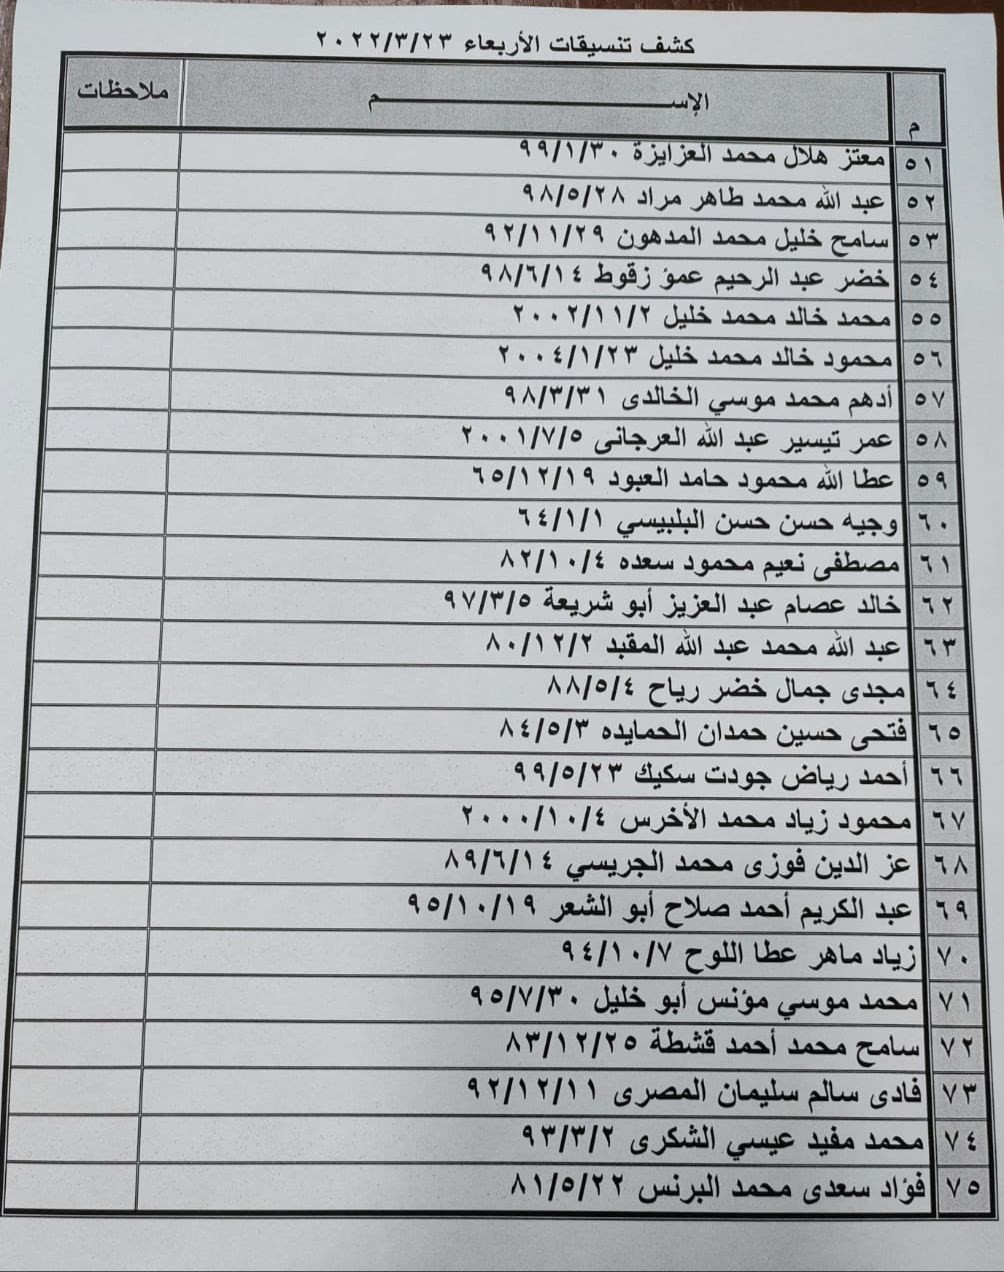 كشف تنسيقات الأربعاء ٢٠٢٢/٣/٢٣
م الإســـــــــم ملاحظات
٥١ معتز هلال محمد العزايزة ٩٩/١/٣٠
٥٢ عبد الله محمد طاهر مراد ٩٨/٥/٢٨
٥٣ سامح خليل محمد المدهون ٩٢/١١/٢٩
٥٤ خضر عبد الرحيم عمؤ زقوط ٩٨/٦/١٤
٥٥ محمد خالد محمد خليل ٢٠٠٢/١١/٢
٥٦ محمود خالد محمد خليل ٢٠٠٤/١/٢٣
٥٧ أدهم محمد موسي الخالدى ٩٨/٣/٣١
٥٨ عمر تيسير عبد الله العرجانى ٢٠٠١/٧/٥
٥٩ عطا الله محمود حامد العبود ٦٥/١٢/١٩
٦٠ وجيه حسن حسن البلبيسي ٦٤/١/١
٦١ مصطفى نعيم محمود سعده ٨٢/١٠/٤
٦٢ خالد عصام عبد العزيز أبو شريعة ٩٧/٣/٥
٦٣ عبد الله محمد عبد الله المقبد ٨٠/١٢/٢
٦٤ مجدى جمال خضر رياح ٨٨/٥/٤
٦٥ فتحى حسين حمدان الحمايده ٨٤/٥/٣
٦٦ أحمد رياض جودت سكيك ٩٩/٥/٢٣
٦٧ محمود زياد محمد الأخرس ٢٠٠٠/١٠/٤
٦٨ عز الدين فوزى محمد الجريسي ٨٩/٦/١٤
٦٩ عبد الكريم أحمد صلاح أبو الشعر ٩٥/١٠/١٩
٧٠ زياد ماهر عطا اللوح ٩٤/١٠/٧
٧١ محمد موسي مؤنس أبو خليل ٩٥/٧/٣٠
٧٢ سامح محمد أحمد قشطة ٨٣/١٢/٢٥
٧٣ فادى سالم سليمان المصرى ٩٢/١٢/١١
٧٤ محمد مفيد عيسي الشكرى ٩٣/٣/٢
٧٥ فؤاد سعدى محمد البرنس ٨١/٥/٢٢